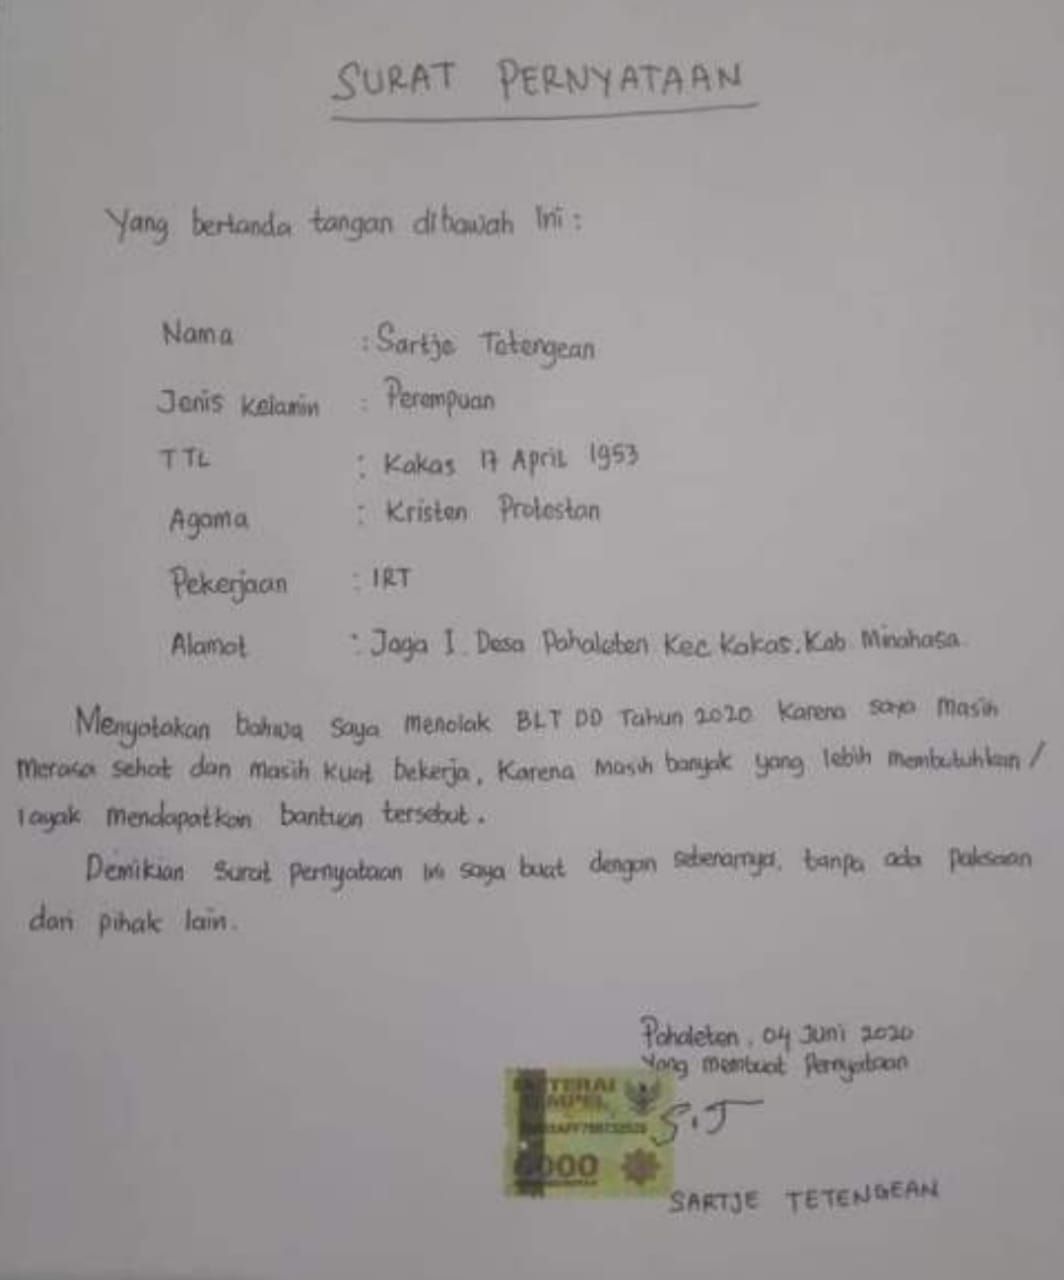 SURAT PERNYATAAN
Yang bertanda tangan dibawah Ini :
Nama : Sartje Tetengean
Jenis Kelamin : Perempuan
TTL : Kakas 17 April 1953
Agama : Kristen Protestan
Pekerjaan : IRT
Alamat : Jaga I Desa Pahaleten Kec Kakas. Kab Minahasa
Menyatakan bahwa saya menolak BLT DD Tahun 2020 Karena saya masih
merasa sehat dan masih kuat bekerja, Karena masih banyak yang lebih membutuhkan /
layak mendapatkan bantuan tersebut.
Demikian Surat pernyataan ini saya buat dengan sebenarnya, tanpa ada paksaan
dari pihak lain.
Pahaleten, 04 Juni 2020
Yang membuat Pernyataan
TERAI
MPEL
000
S.T
SARTJE TETENGEAN